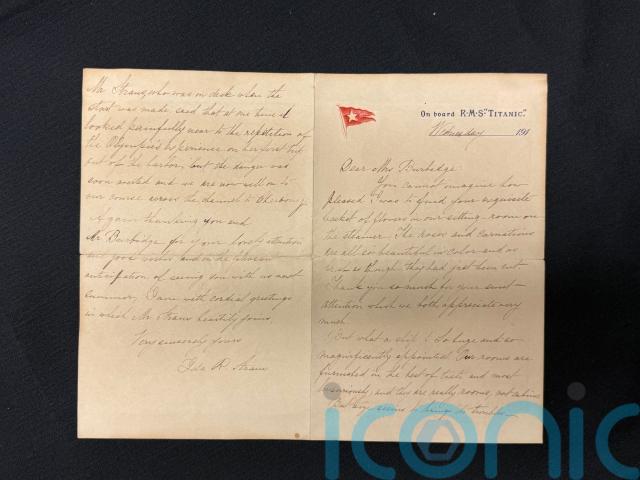 On board R·M·S "TITANIC."
Wednesday 191
Dear Mrs Burbidge:
You cannot imagine how
pleased I was to find your exquisite
basket of flowers in our sitting-room on
the steamer. The roses and carnations
are all so beautiful in color and as
fresh as though they had just been cut.
Thank you so much for your sweet
attention which we both appreciate very
much.
But what a ship! So huge and so
magnificently appointed. Our rooms are
furnished in the best of taste and most
luxuriously, and they are really rooms, not cabins.
But size seems to bring its troubles—
Mr. Straus, who was on deck when the
start was made, said that at one time it
looked painfully near to the repetition of
the Olympic's experience on her first trip
out of the harbor, but the danger was
soon averted and we are now well on to
our course across the channel to Cherbourg.
Again thanking you and
Mr Burbidge for your lovely attention
and good wishes and in the pleasant
anticipation of seeing you with us next
summer, I am with cordial greetings
in which Mr Straus heartily joins,
Very sincerely yours
Ida R. Straus
iconic